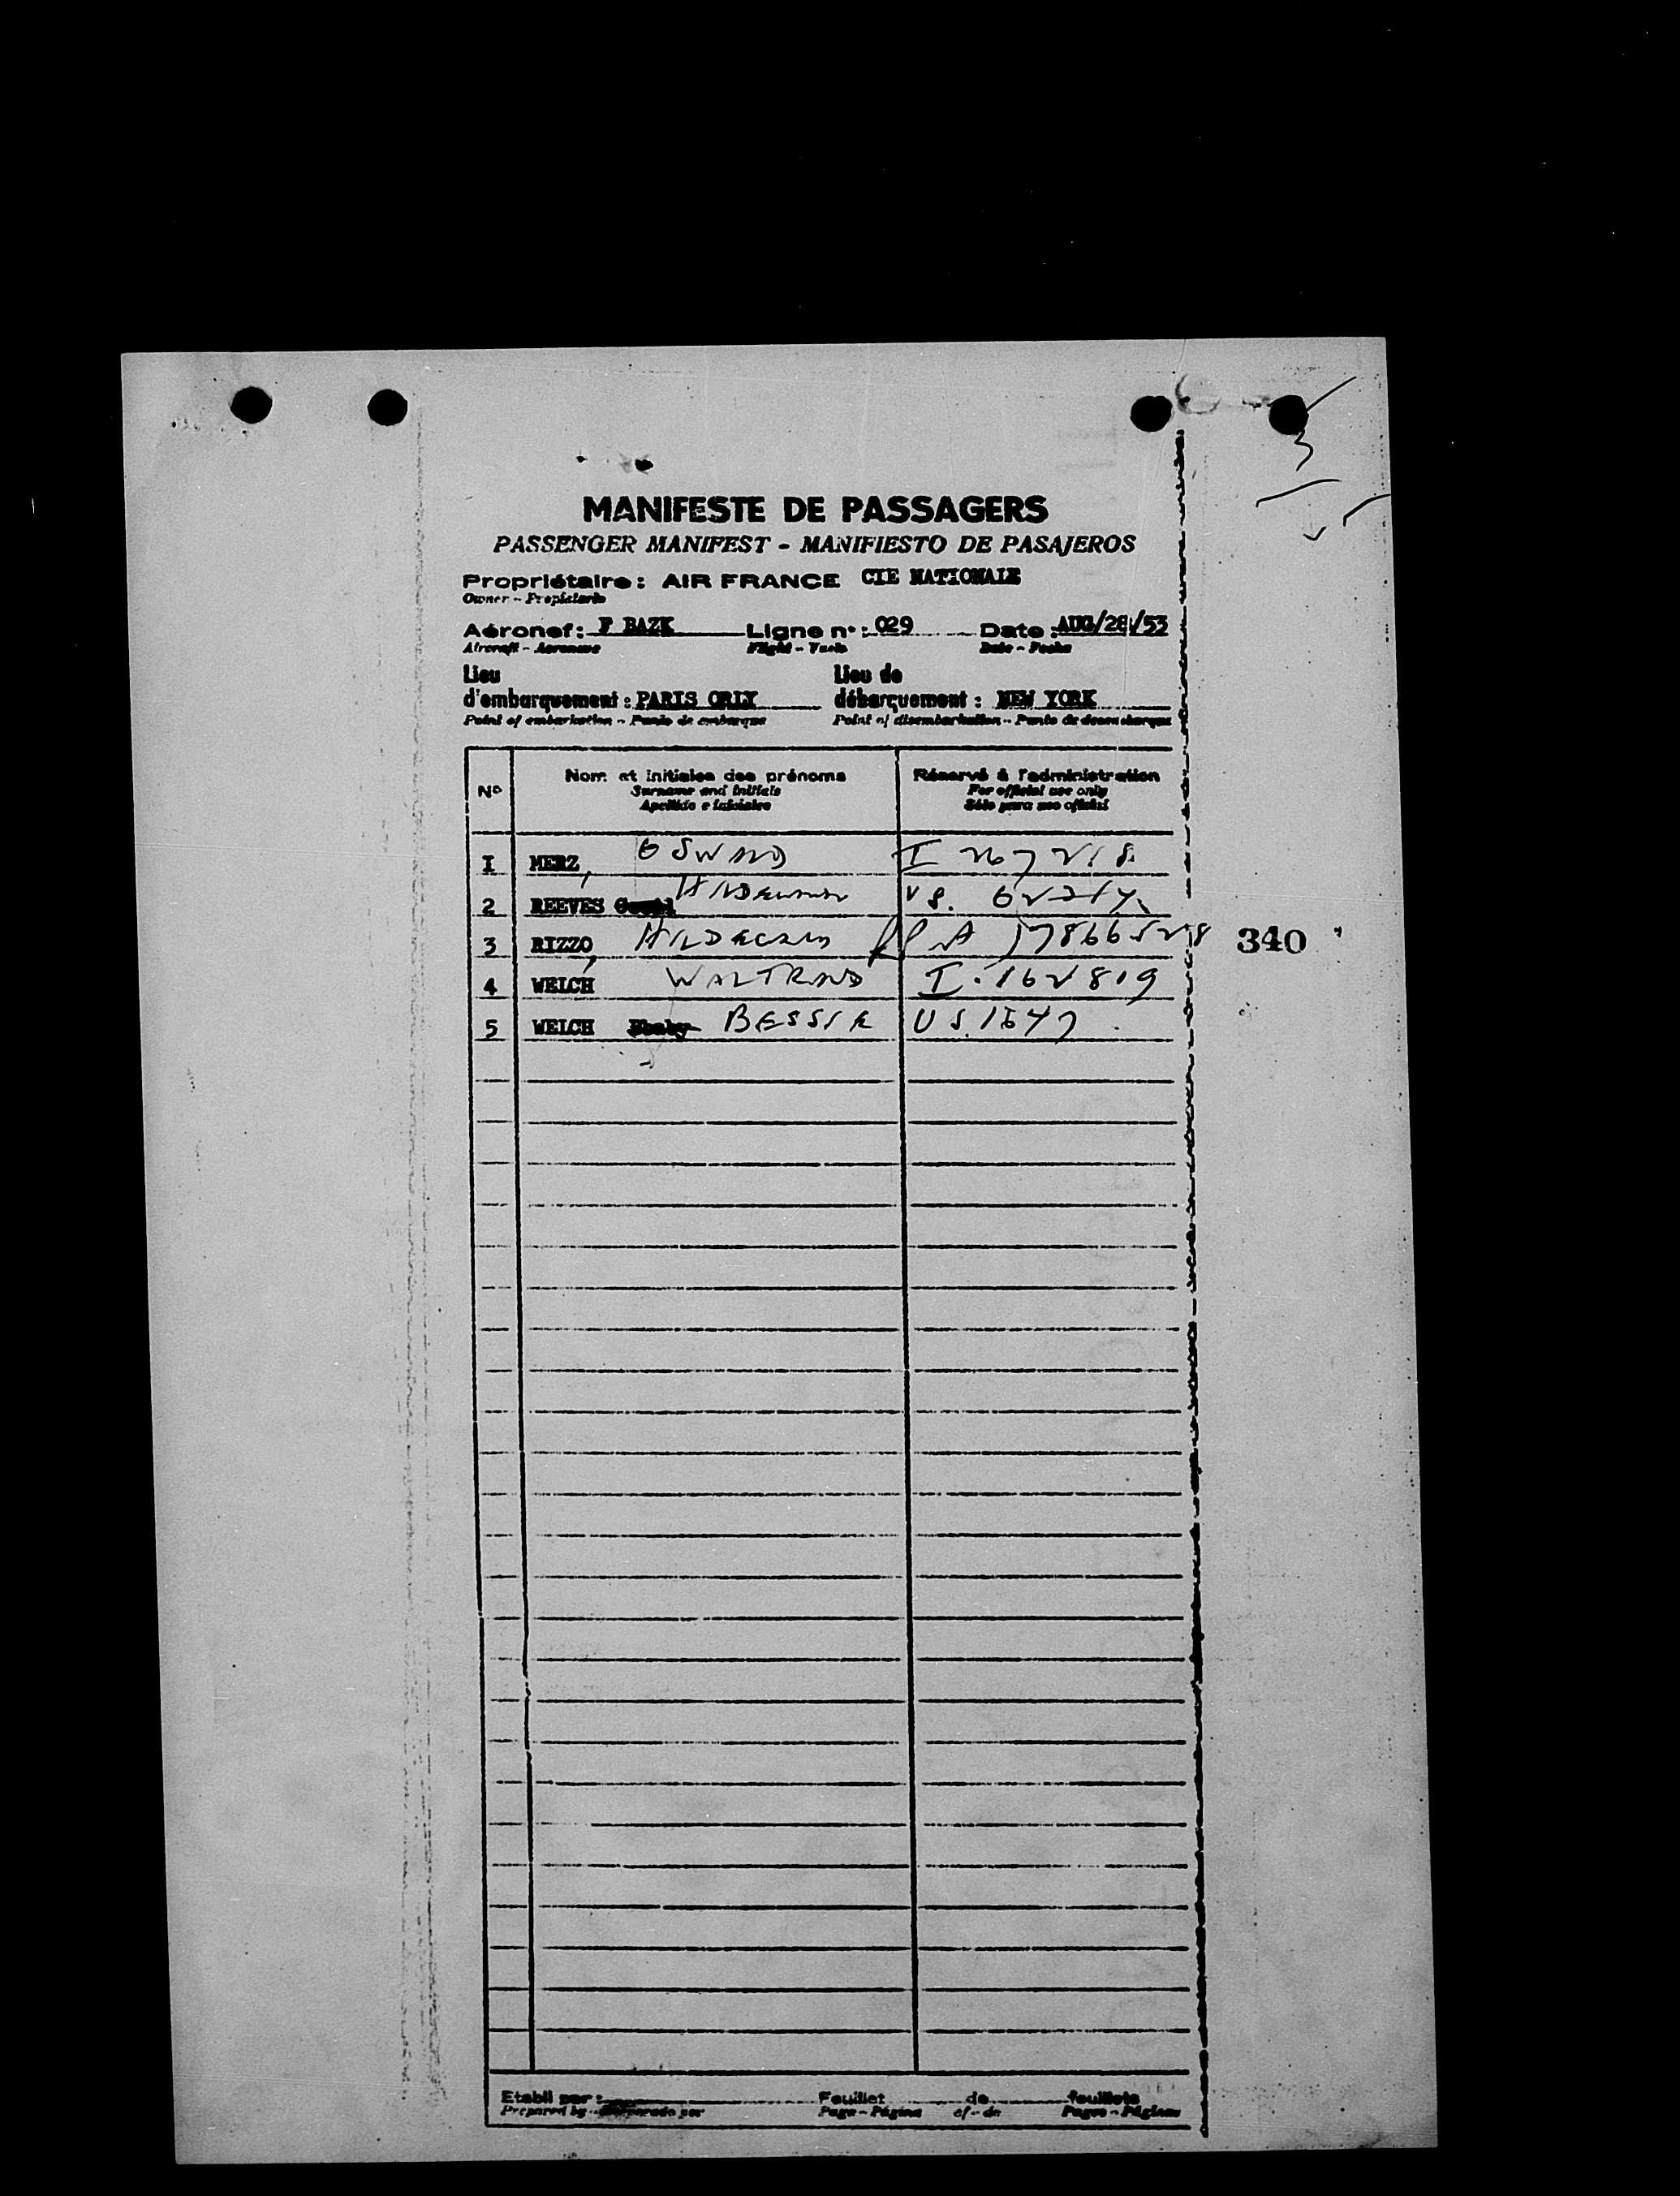 3
MANIFESTE DE PASSAGERS
PASSENGER MANIFEST - MANIFIESTO DE PASAJEROS
Propriétaire : AIR FRANCE CIE NATIONALE
Owner - Propietario
Aéronef : F BAZK Ligne n° : 029 Date : AUG/28/53
Aircraft - Aeronave Flight - Vuelo Date - Fecha
Lieu Lieu de
d'embarquement : PARIS ORLY débarquement : NEW YORK
Point of embarkation - Punto de embarque Point of disembarkation - Punto de desembarque
N° Nom et initiales des prénoms Réservé à l'administration
Surname and initials For official use only
Apellido e iniciales Sólo para uso oficial
I MERZ, OSWALD I 267218
2 REEVES
3 RIZZO, 17866528 340
4 WELCH WALTRAND I.162819
5 WELCH BESSIE US.1647
Etabli par : Feuillet de feuillets
Prepared by - Preparado por Page - Página of - de Pages - Páginas